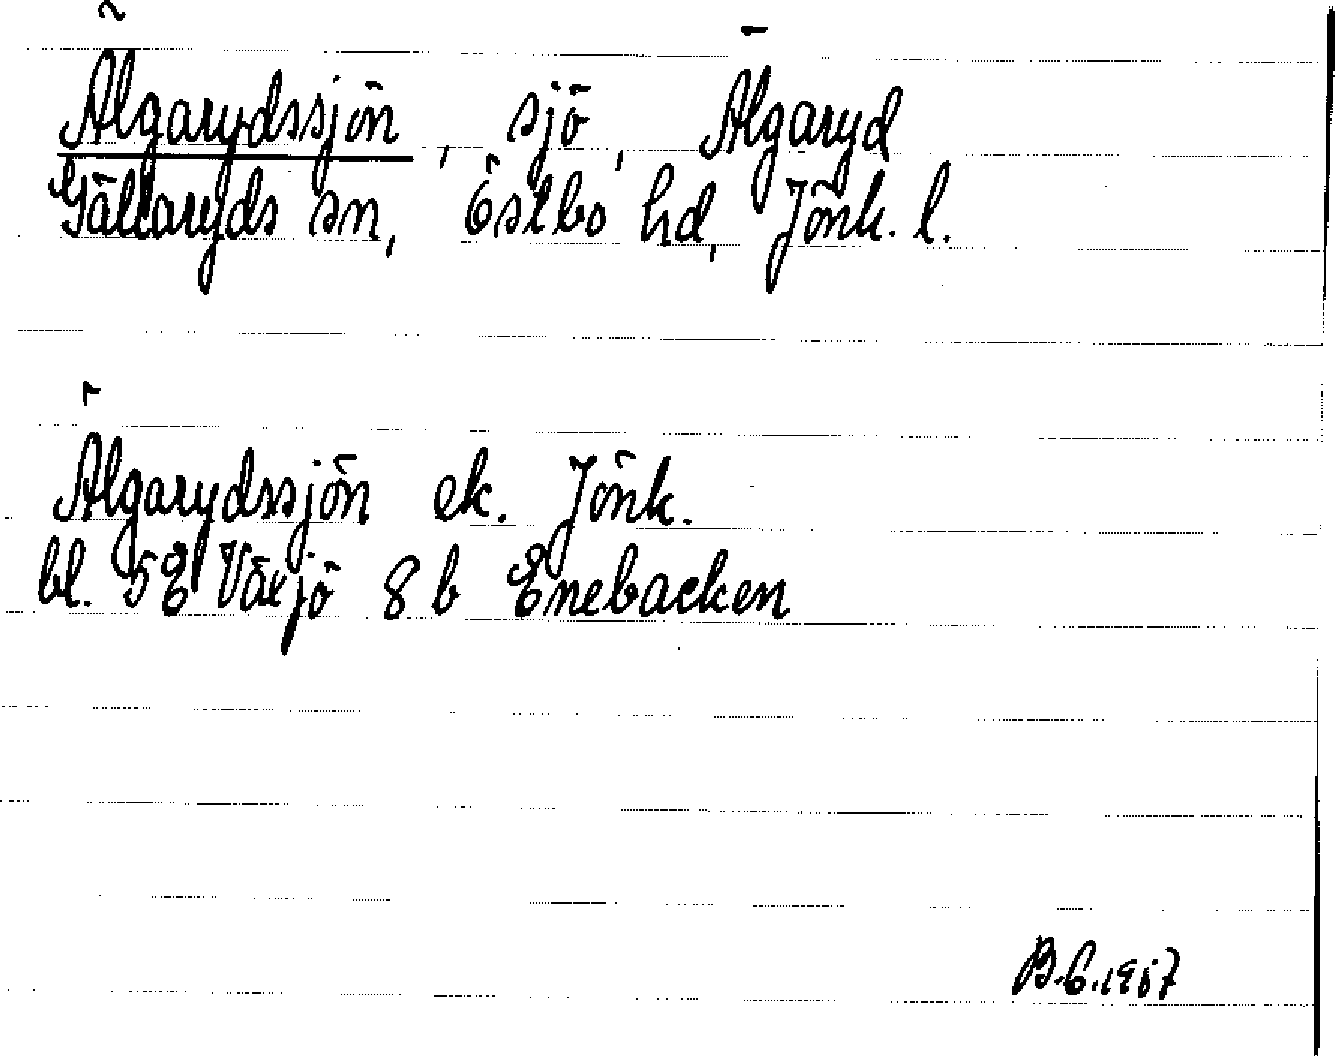 Älgarydssjön, sjö, Älgaryd
Gällaryds sn, Östbo hd, Jönk. l.
Älgarydssjön ek. Jönk.
bl. 5E Växjö 8 b Enebacken
B.G.1967